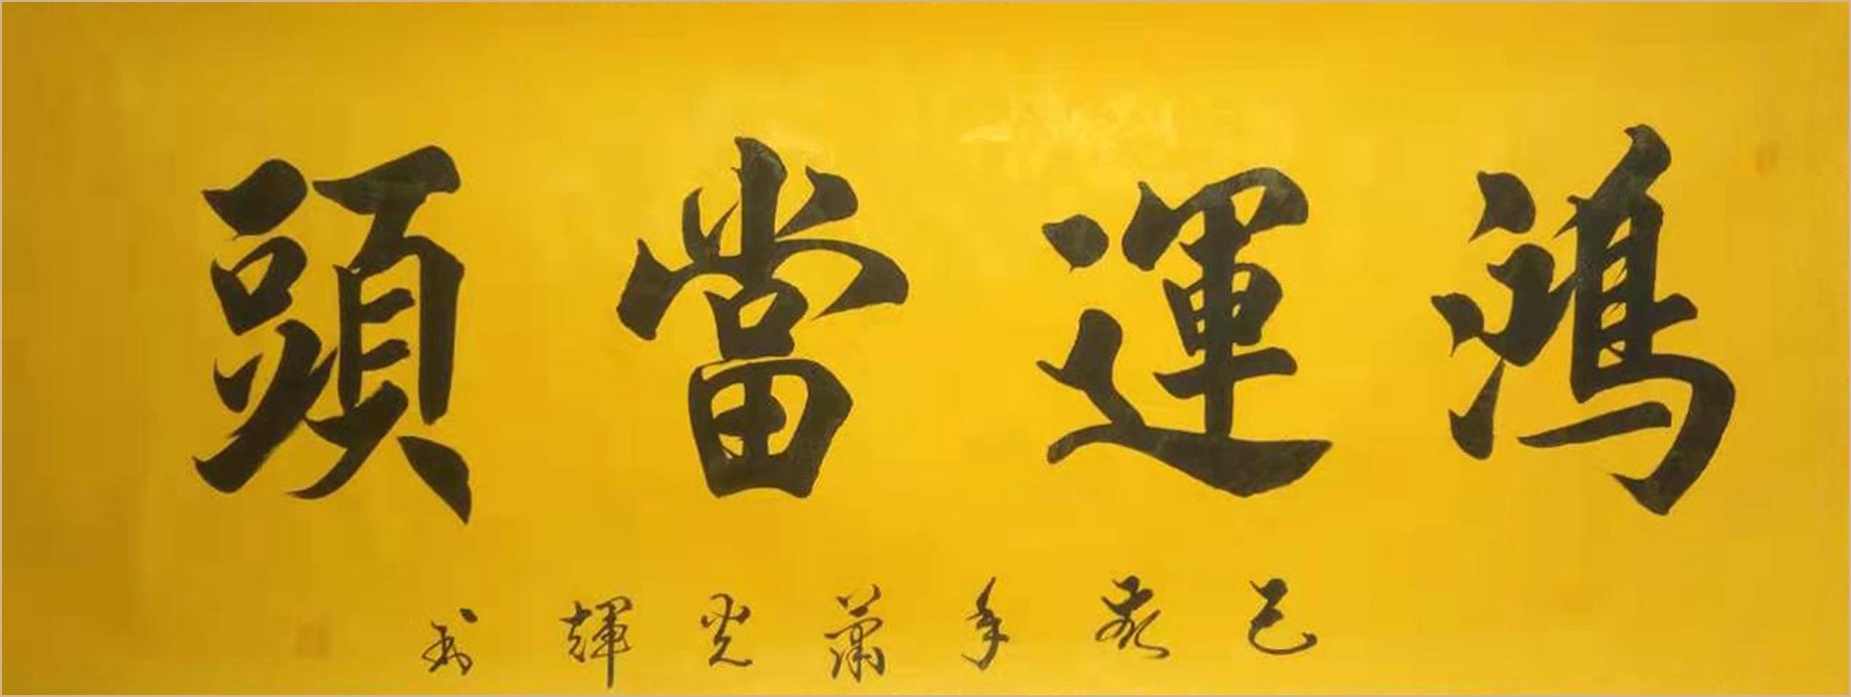 鴻運當頭
己亥年蕭光輝书